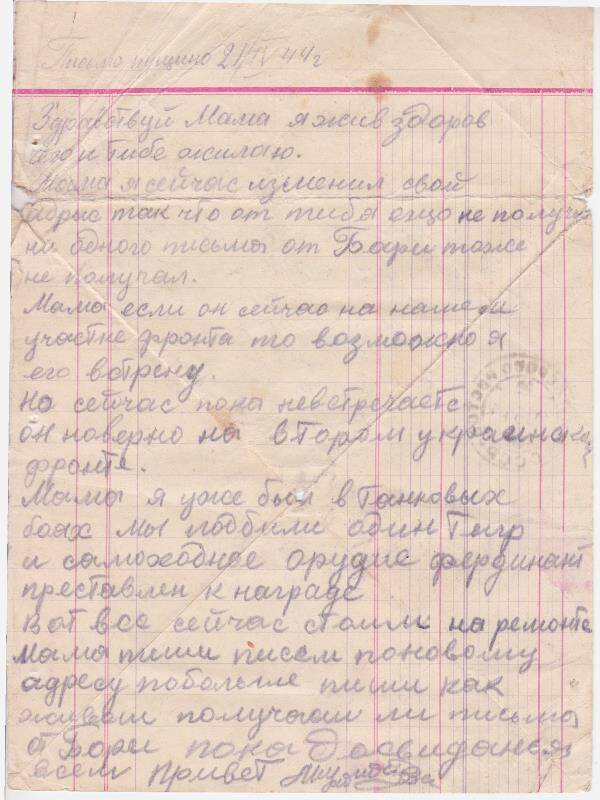 Письмо пущино 21/IV 44 г
Здравствуй Мама я жив здоров
чего и тибе жилаю.
Мама я сейчас изменил свой
адрыс так что от тибя ещо не получил
ни одного письма от Бори тоже
не получал.
Мама если он сейчас на нашем
участке фронта то возможно я
его встречу.
Но сейчас пока невстречаетс
он новерно на втором украинском
фронте.
Мама я уже был в Танковых
боях мы подбили один Тигр
и самоходное орудие фердинант
преставлен к награде
Вот все сейчас стоим на ремонте
Мама пиши писем поновому
адресу побольше пиши как
живёш получаеш ли письма
от Бори пока Досвиданья
всем привет